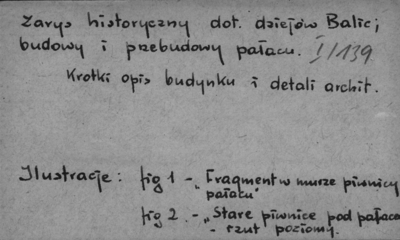 Zarys historyczny dot. dziejów Balic;
budowy i przebudowy pałacu. I/139
Krotki opis budynku i detali archit.
Ilustracje: fig 1 - „Fragment w murze piwnicy
pałacu"
fig 2. - „Stare piwnice pod pałacem
- rzut poziomy.